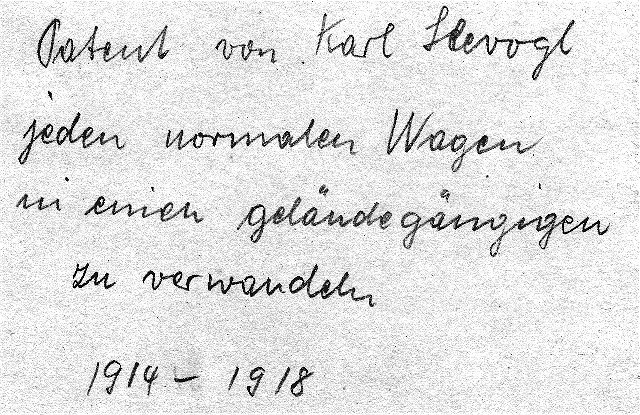 Patent von Karl Slevogt
jeden normalen Wagen
in einen geländegängigen
zu verwandeln
1914 – 1918